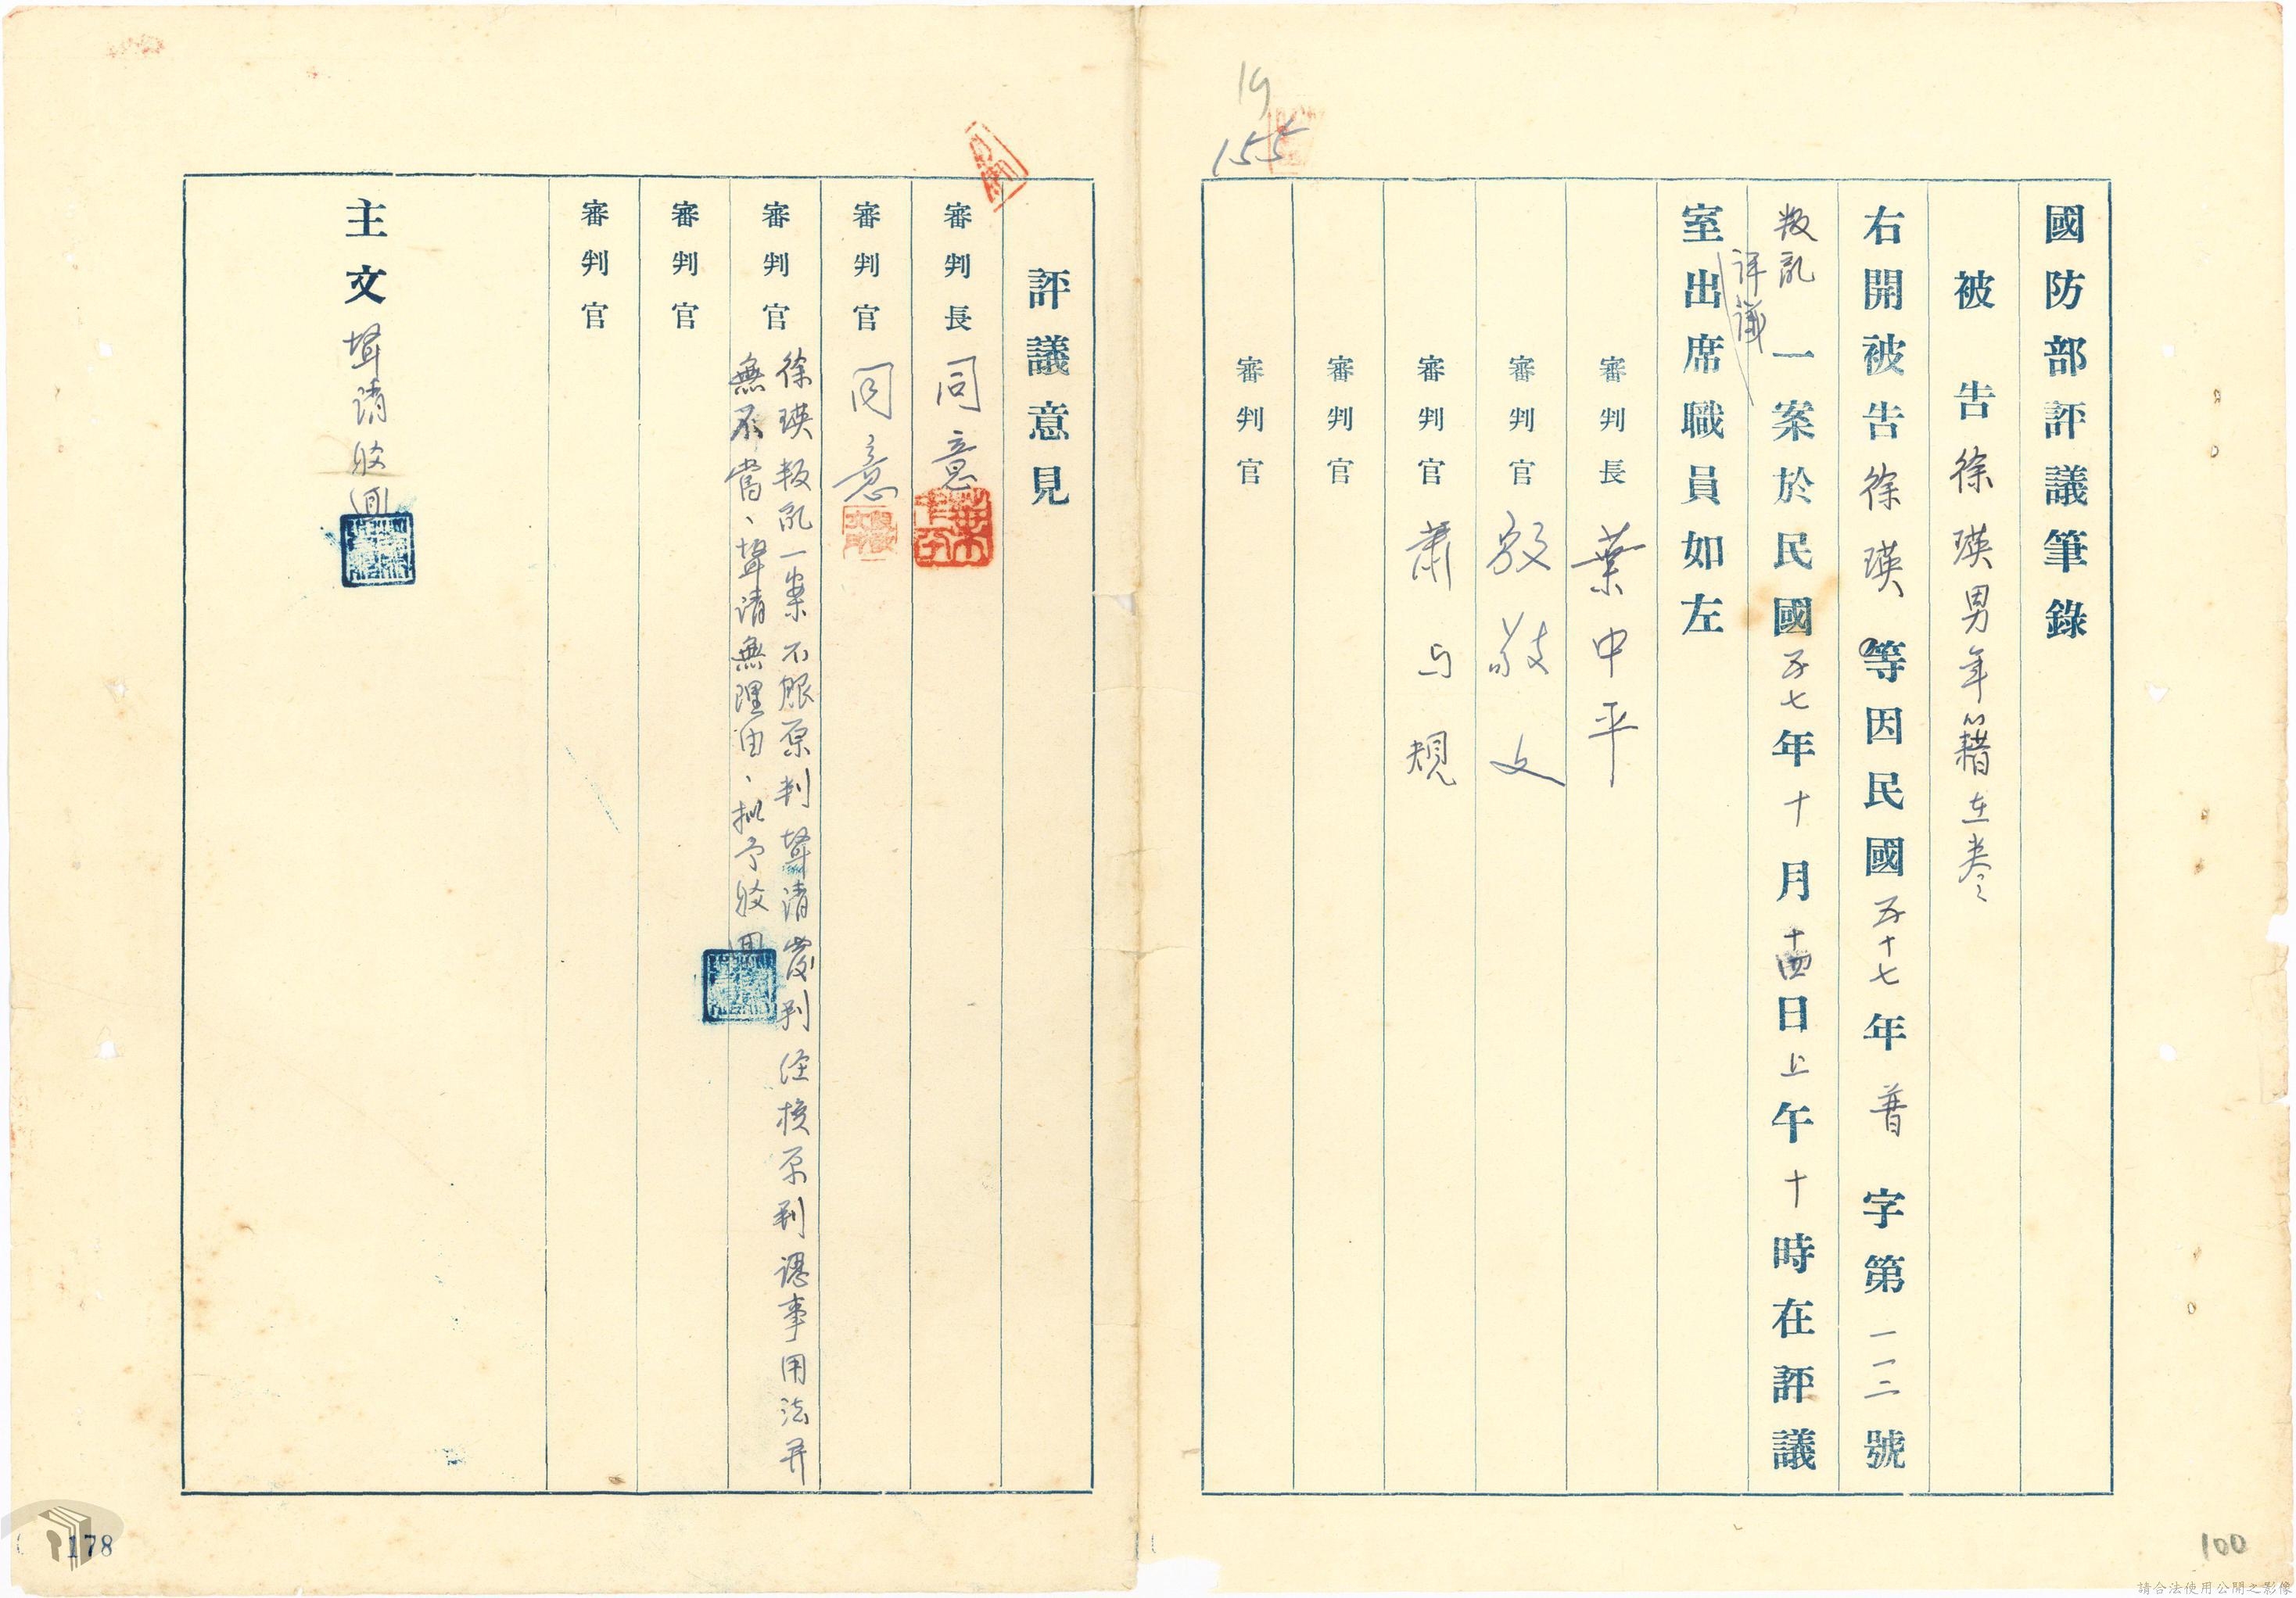 國防部評議筆錄
被告 徐瑛男年籍在卷
右開被告徐瑛等因民國五十七年普字第一一二號
叛亂一案於民國五七年十月十四日上午十時在評議
評議
室出席職員如左
審判長 葉中平
審判官 殷敬文
審判官 蕭与規
審判官
審判官
19
155
評議意見
審判長 同意
審判官 同意
審判官 徐瑛叛亂一案不服原判聲請覆判経核原判認事用法并
無不當、聲請無理由、拟予駁回
審判官
審判官
主文 聲請駁回
178
100
請合法使用公開之影像